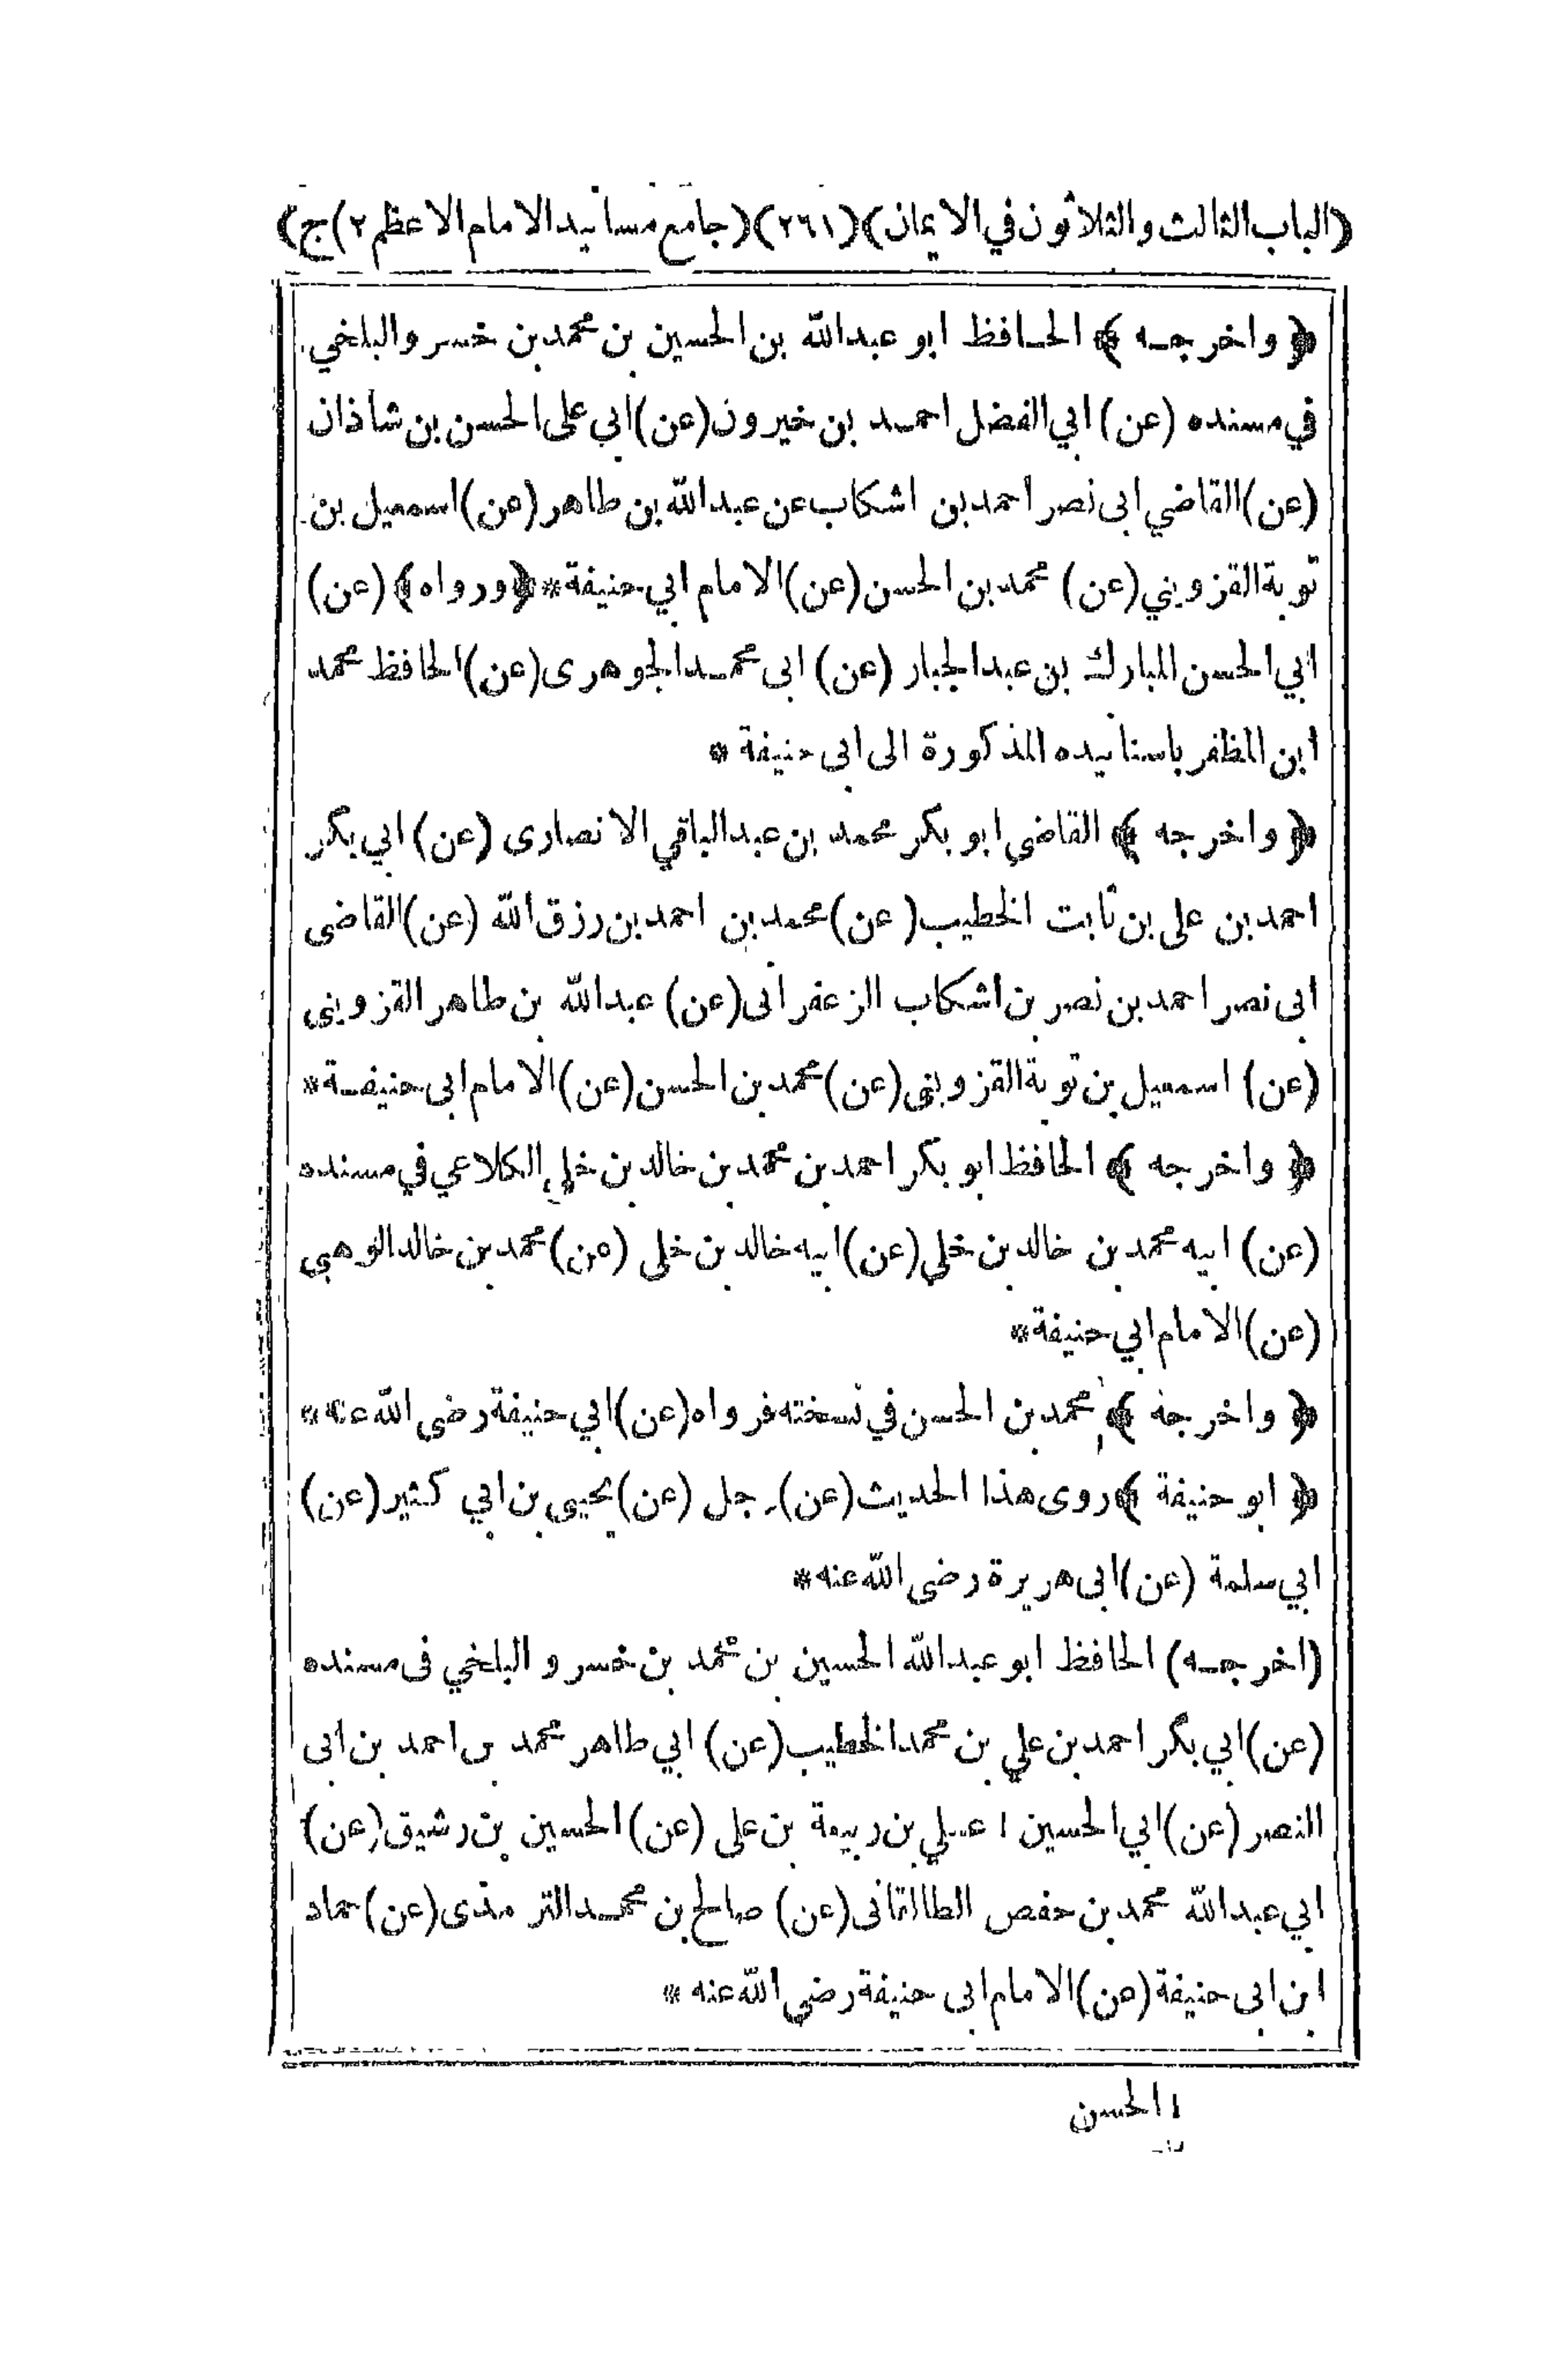 (الباب الثالث والثلاثون في الايمان) (٢٦١) (جامع مسانيد الامام الاعظم ٢) ج)
﴿ واخرجه ﴾ الحافظ ابو عبدالله بن الحسين بن محمد بن خسرو البلخي
في مسنده (عن) ابي الفضل احمد بن خيرون (عن) ابي على الحسن بن شاذان
(عن) القاضي ابى نصر احمد بن اشكاب عن عبدالله بن طاهر (عن) اسمعيل بن
توبة القزويني (عن) محمد بن الحسن (عن) الامام ابي حنيفة * ﴿ورواه﴾ (عن)
ابي الحسن المبارك بن عبد الجبار (عن) ابى محمد الجوهرى (عن) الحافظ محمد
ابن المظفر باسنانيده المذكورة الى ابى حنيفة *
﴿ واخرجه ﴾ القاضي ابو بكر محمد بن عبد الباقي الانصارى (عن) ابي بكر
احمد بن على بن ثابت الخطيب (عن) محمد بن احمد بن رزق الله (عن) القاضى
ابى نصر احمد بن نصر بن اشكاب الزعفرانى (عن) عبدالله بن طاهر القزوينى
(عن) اسمعيل بن توبة القزوينى (عن) محمد بن الحسن (عن) الامام ابى حنيفة *
﴿ واخرجه ﴾ الحافظ ابو بكر احمد بن محمد بن خالد بن خلي الكلاعي في مسنده
(عن) ابيه محمد بن خالد بن خلي (عن) ابيه خالد بن خلى (عن) محمد بن خالد الوهبى
(عن) الامام ابي حنيفة *
﴿ واخرجه ﴾ محمد بن الحسن في نسخته فرواه (عن) ابي حنيفة رضى الله عنه *
﴿ ابو حنيفة ﴾ روى هذا الحديث (عن) رجل (عن) يحيى بن ابي كثير (عن)
ابي سلمة (عن) ابى هريرة رضى الله عنه *
(اخرجه) الحافظ ابو عبدالله الحسين بن محمد بن خسرو البلخي فى مسنده
(عن) ابي بكر احمد بن علي بن محمد الخطيب (عن) ابي طاهر محمد بن احمد بن ابى
النصر (عن) ابي الحسين ١ عـلي بن ربيعة بن على (عن) الحسين بن رشيق (عن)
ابي عبدالله محمد بن حفص الطالقانى (عن) صالح بن محمد الترمذى (عن) حماد
ابن ابى حنيفة (عن) الامام ابى حنيفة رضي الله عنه *
١ الحسن